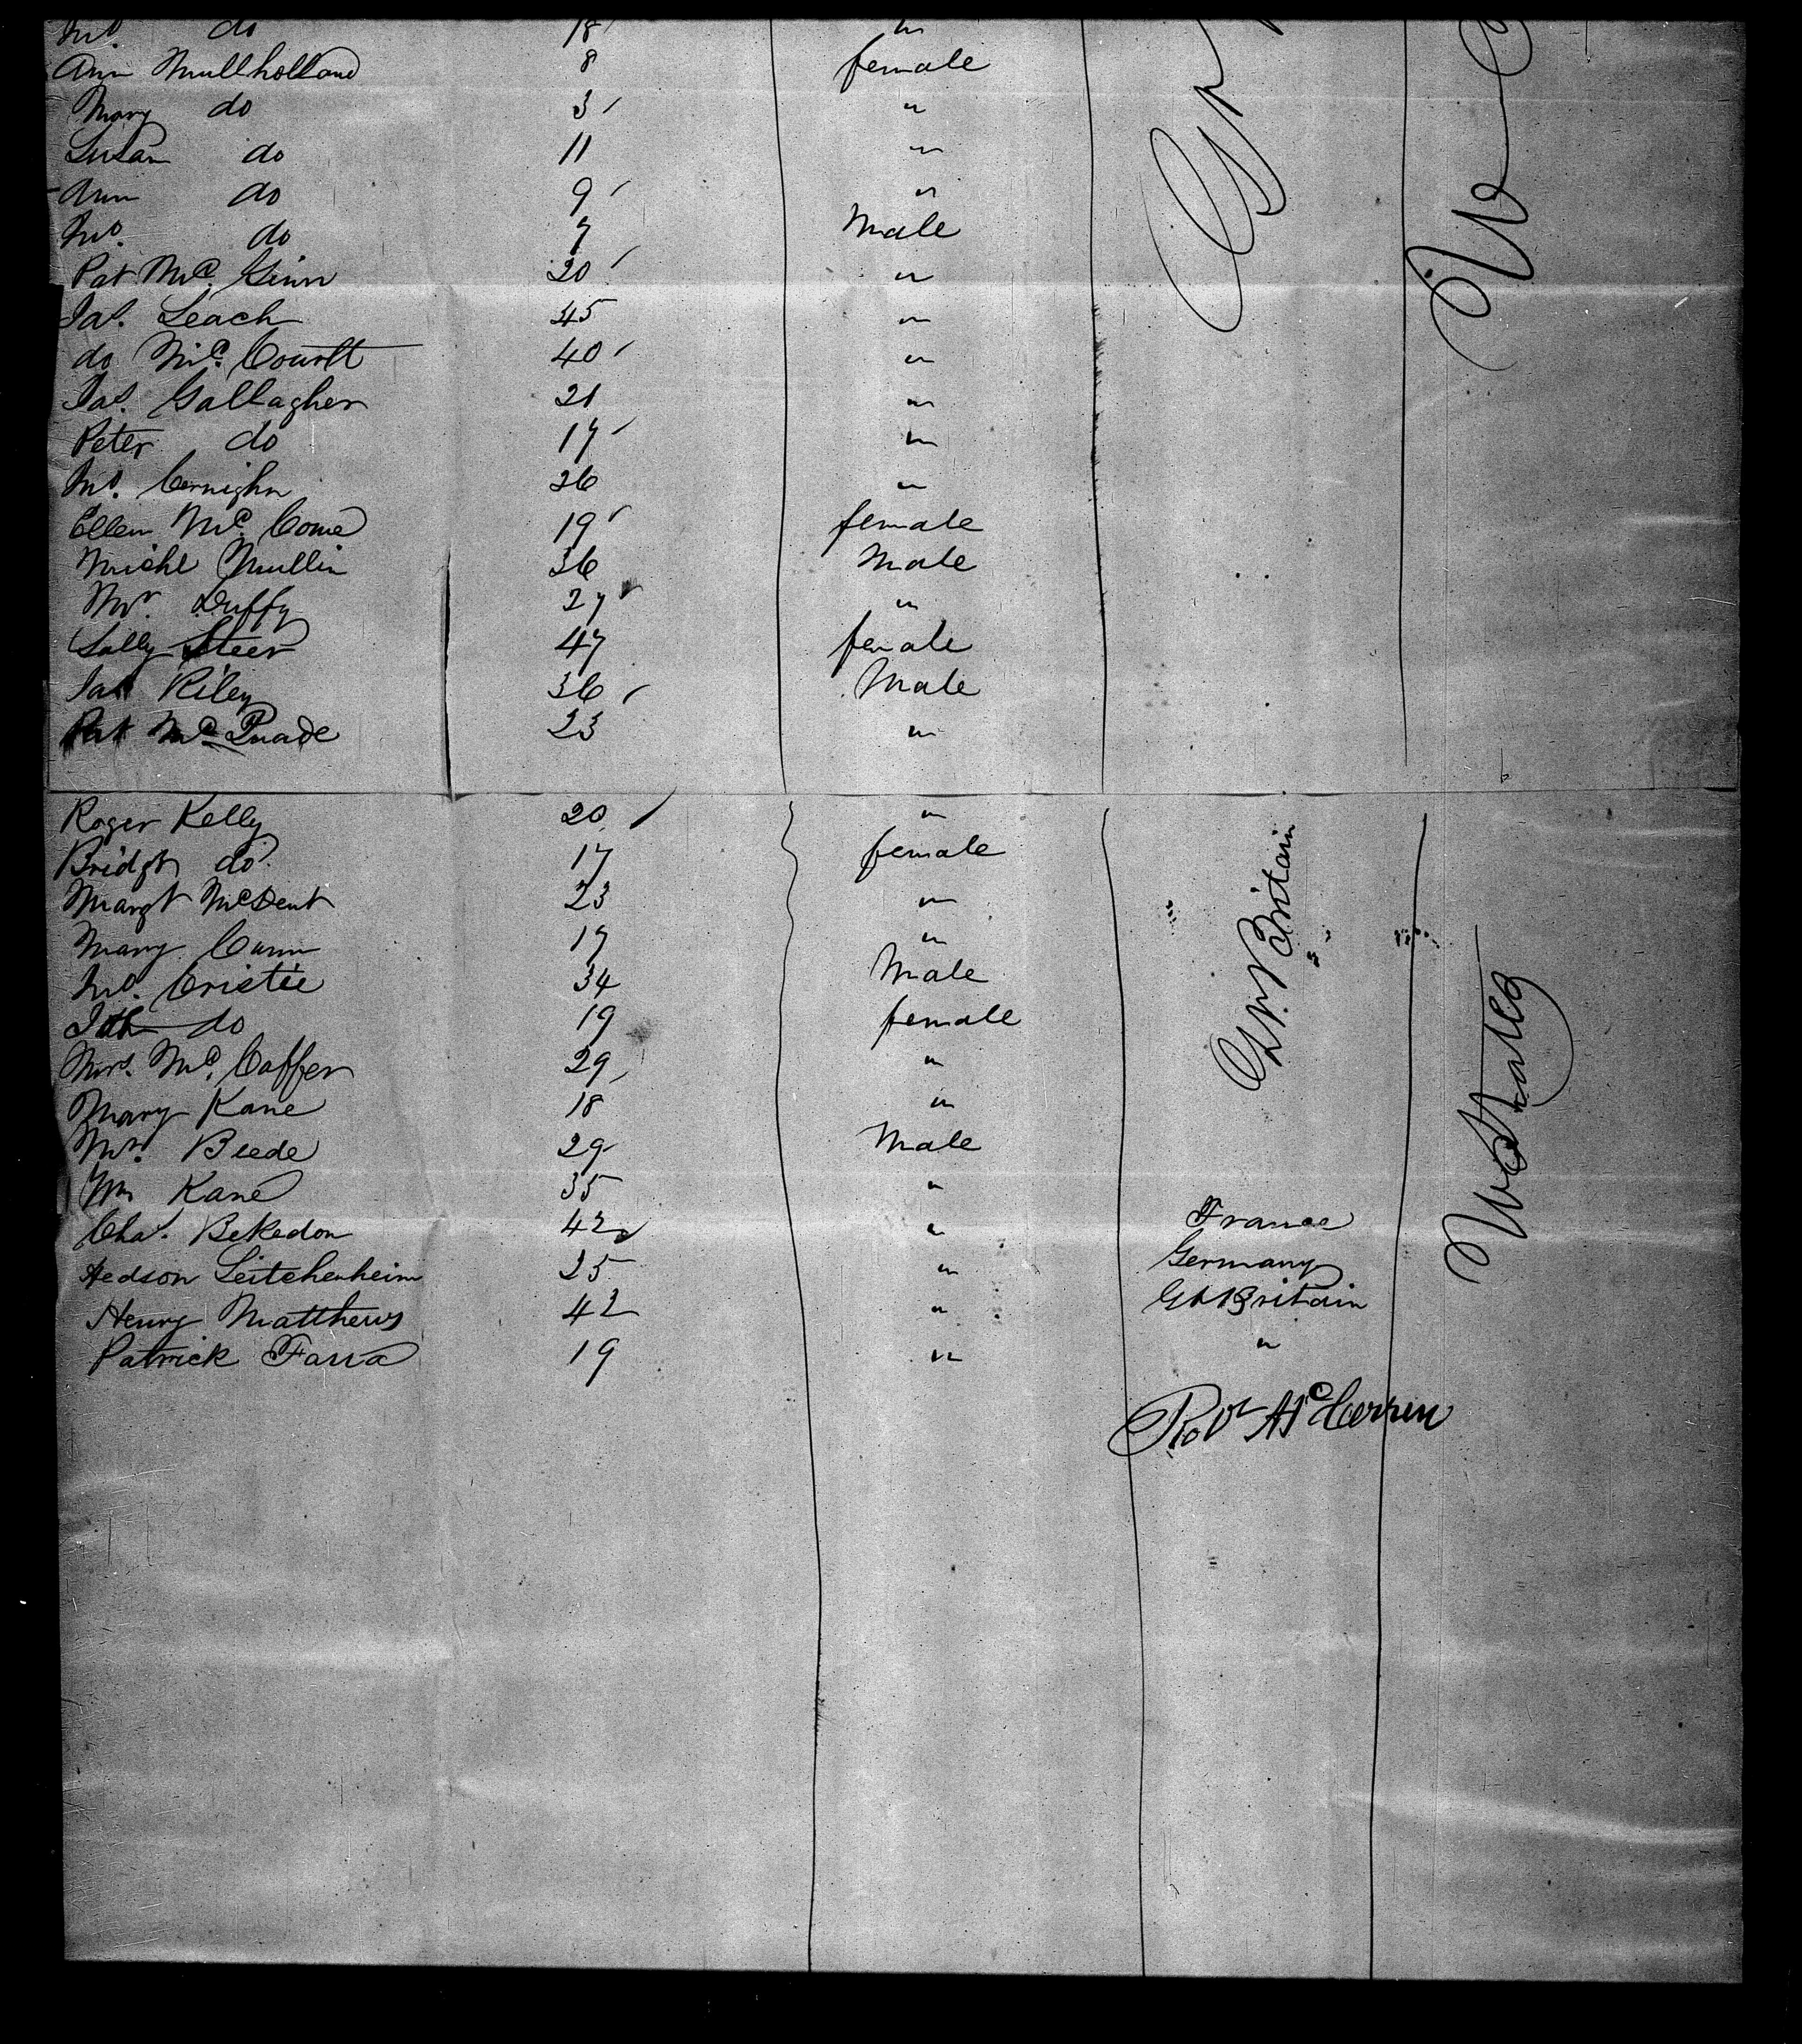 Jno. do 18 "
Ann Mullholland 8 female
Mary do 3 "
Susan do 11 "
Ann do 9 "
Jno. do 7 Male
Pat McGinn 20 "
Jas. Leach 45 "
do McCourtt 40 "
Jas. Gallagher 21 "
Peter do 17 "
Jno. Cernighn 26 "
Ellen McCome 19 female
Michl Mullin 36 Male
Mr. Duffy 27 "
Sally Steer 47 female
Jas Riley 36 Male
Pat McQuade 23 "
Roger Kelly 20 "
Bridgt do 17 female
Margt McDent 23 "
Mary Cann 17 "
Jno. Cristie 34 Male
do 19 female
Mrs. McCaffer 29 "
Mary Kane 18 "
Mr. Beede 29 Male
Wm Kane 35 "
Chas. Bekedon 42 " France
Hedson Leitchenheim 25 " Germany
Henry Matthews 42 " Gt Britain
Patrick Farra 19 " "
Gr. Britain
U States
Robt McCerren